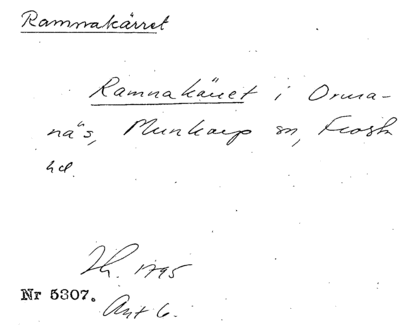 Ramnakärret
Ramnakärret i Orma-
näs, Munkarp sn, Frosta
hd.
Lh. 1795
Nr 5307.
Akt 6.